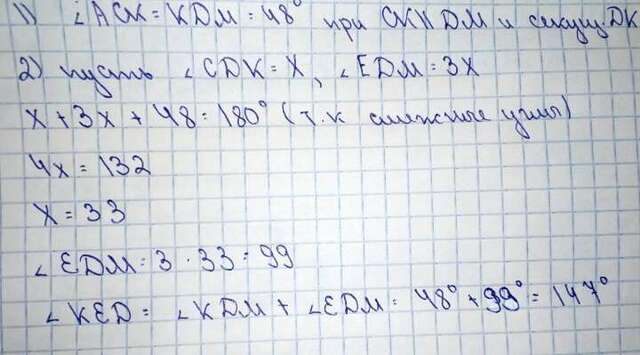 1) ∠ACK = KDM = 48° при CK || DM и секущ. DK
2) пусть ∠CDK = X, ∠EDM = 3X
X + 3X + 48 = 180° (т.к смежные углы)
4X = 132
X = 33
∠EDM = 3 · 33 = 99
∠KED = ∠KDM + ∠EDM = 48° + 99° = 147°